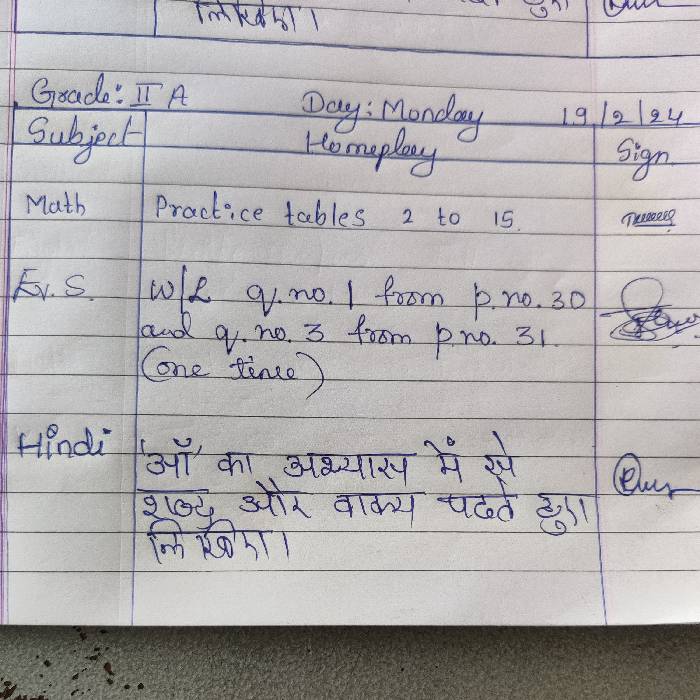 लिखिए।
Grade: II A Day: Monday 19/2/24
Subject Homeplay Sign
Math Practice tables 2 to 15.
Ev. S. W/L q. no. 1 from p. no. 30
and q. no. 3 from p no. 31.
(one time)
Hindi 'ऑ' का अभ्यास में से
शब्द और वाक्य पढते हुए
लिखिए।